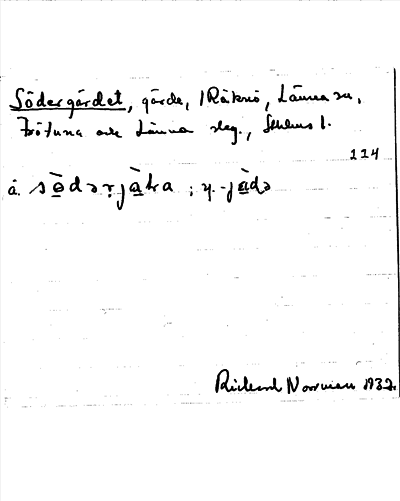 Södergärdet, gärde, i Räknö, Länna sn,
Frötuna och Länna slag., Sthlms l.
224
å. sö̀dərjàka ; y. -jàdə
Rickard Norrman 1932.